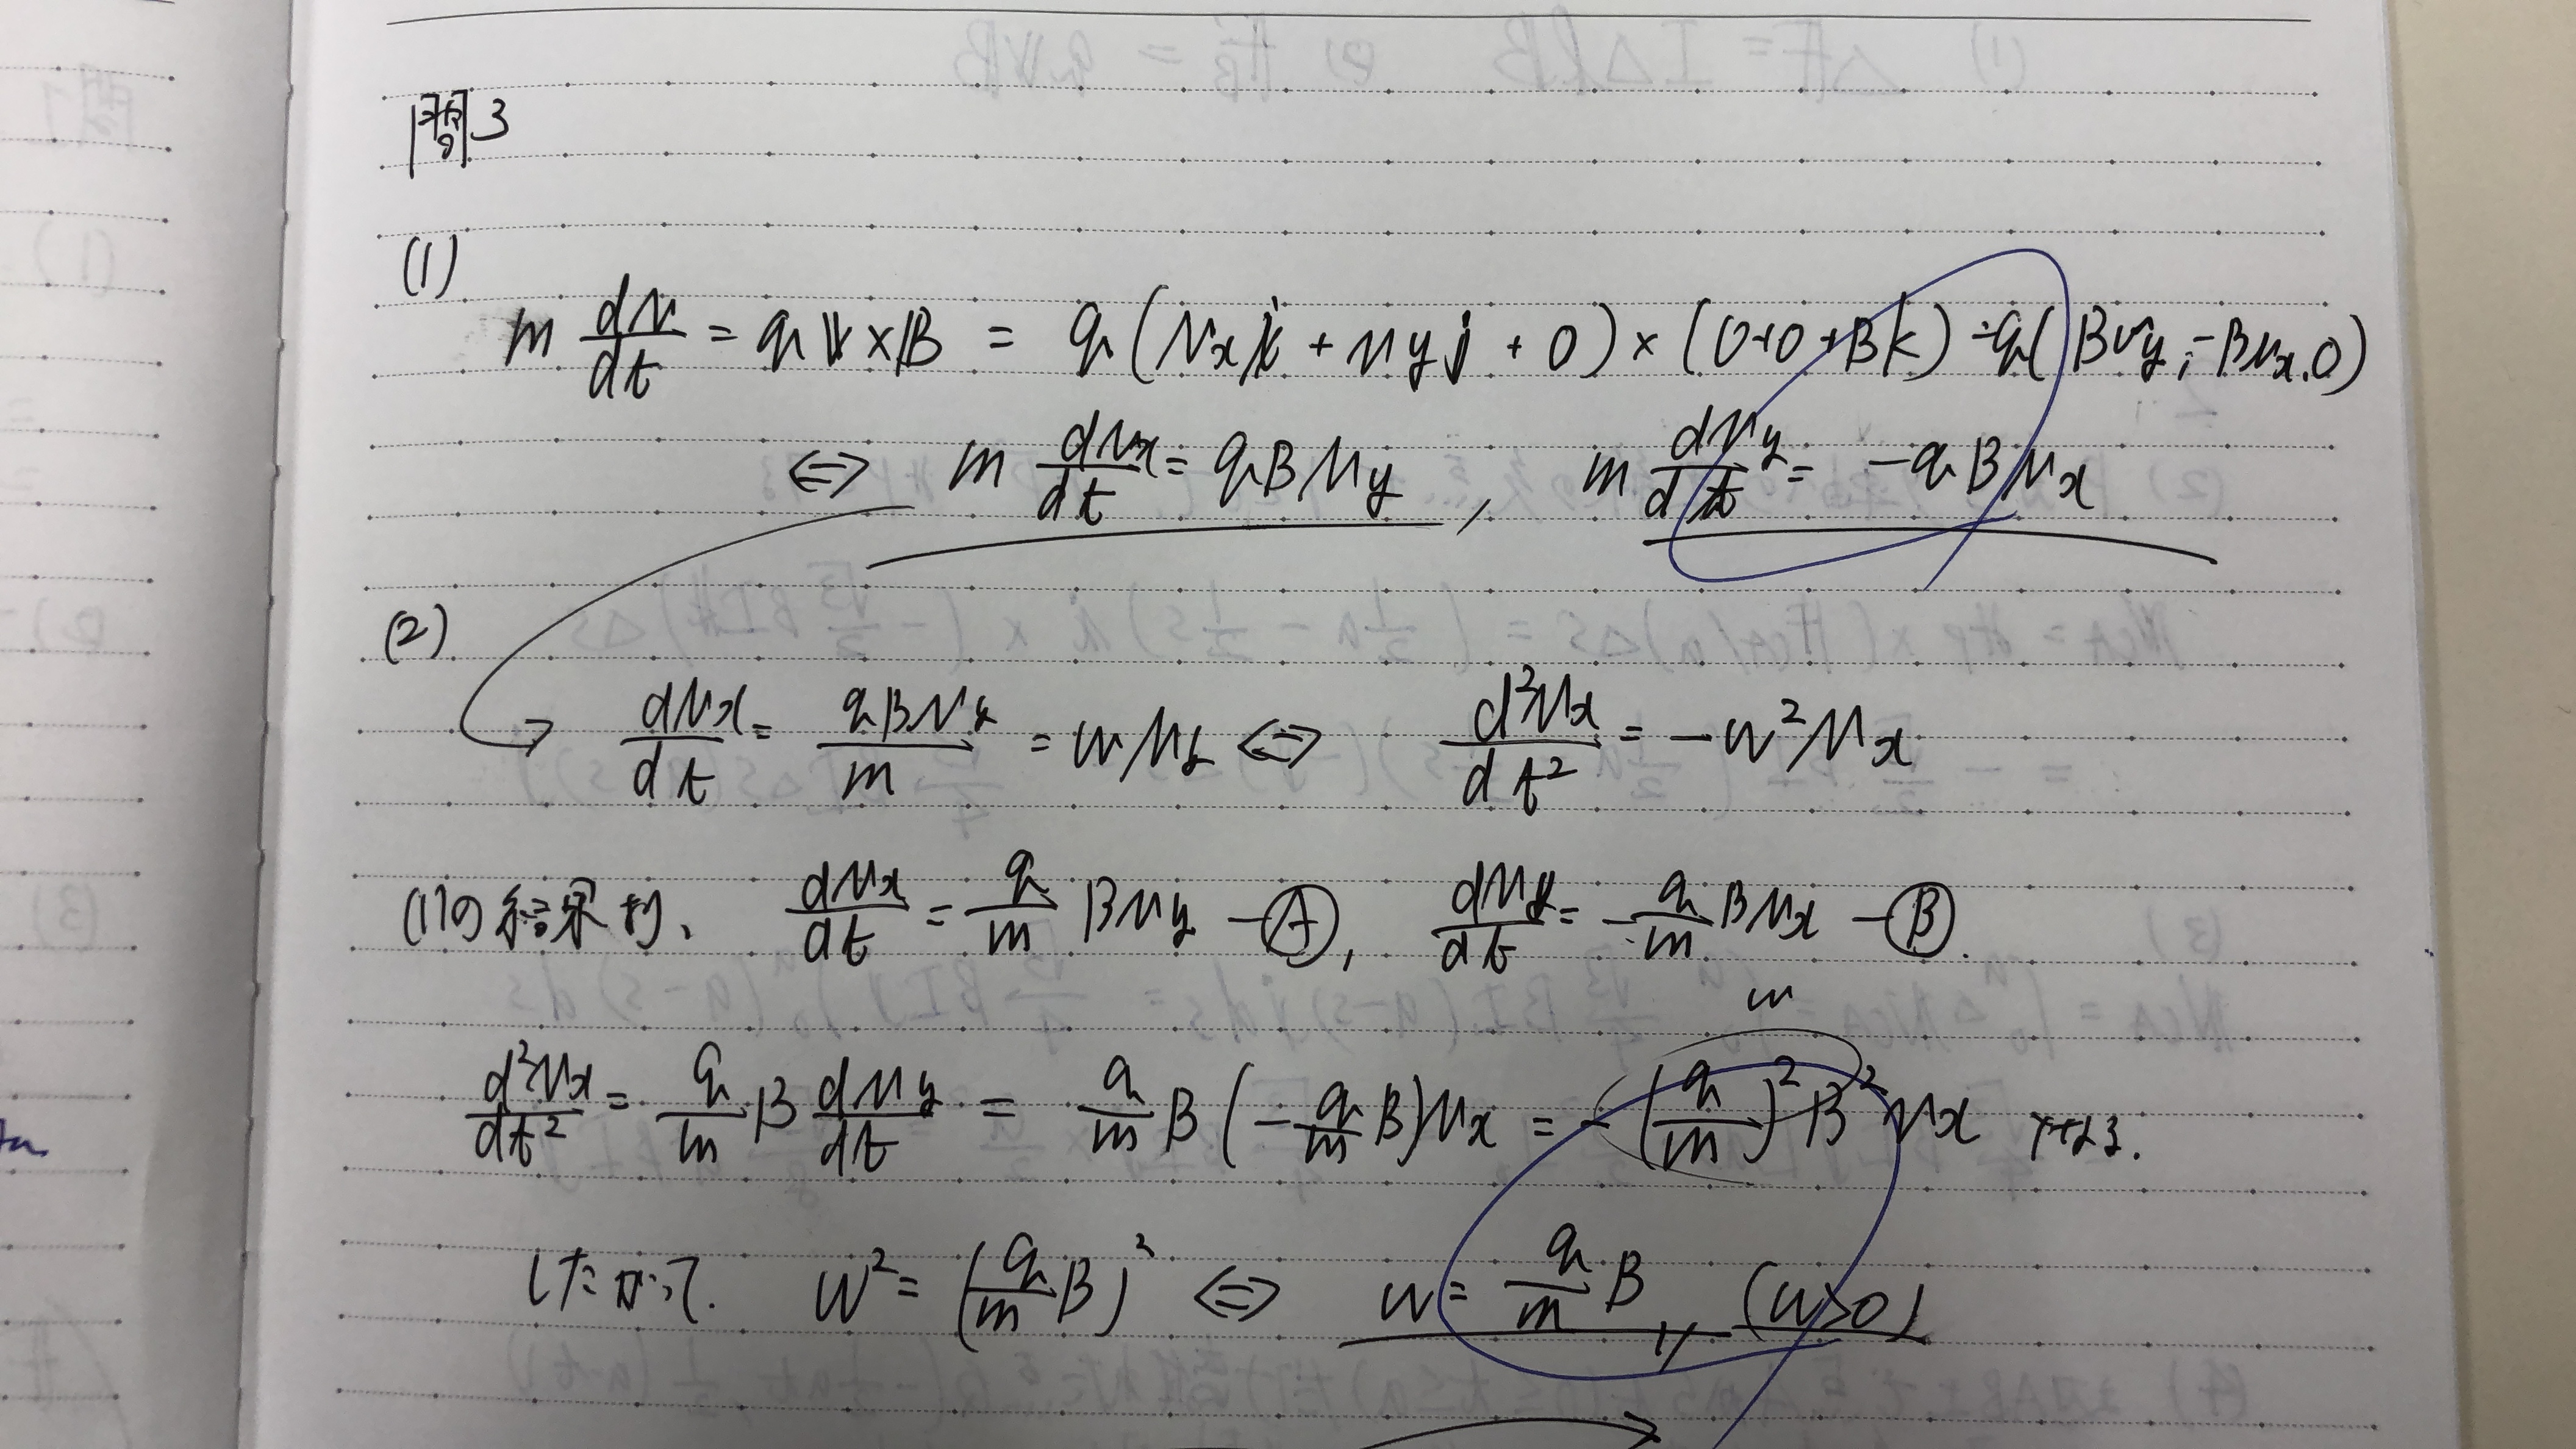 問3
(1)
m dv/dt = q𝕍×𝔹 = q(vx𝕚 + vy𝕛 + 0)×(0+0+B𝕜) = q(Bvy, -Bvx, 0)
⇔ m dvx/dt = qBvy , m dvy/dt = -qBvx
(2)
dvx/dt = qBvy/m = ωvy ⇔ d²vx/dt² = -ω²vx
(1)の結果より、 dvx/dt = q/m Bvy -Ⓐ, dvy/dt = -q/m Bvx -Ⓑ.
ω
d²vx/dt² = q/m B dvy/dt = q/m B (-q/m B)vx = -(q/m)²B²vx となる.
したがって. ω² = (q/m B)² ⇔ ω = q/m B (ω>0)